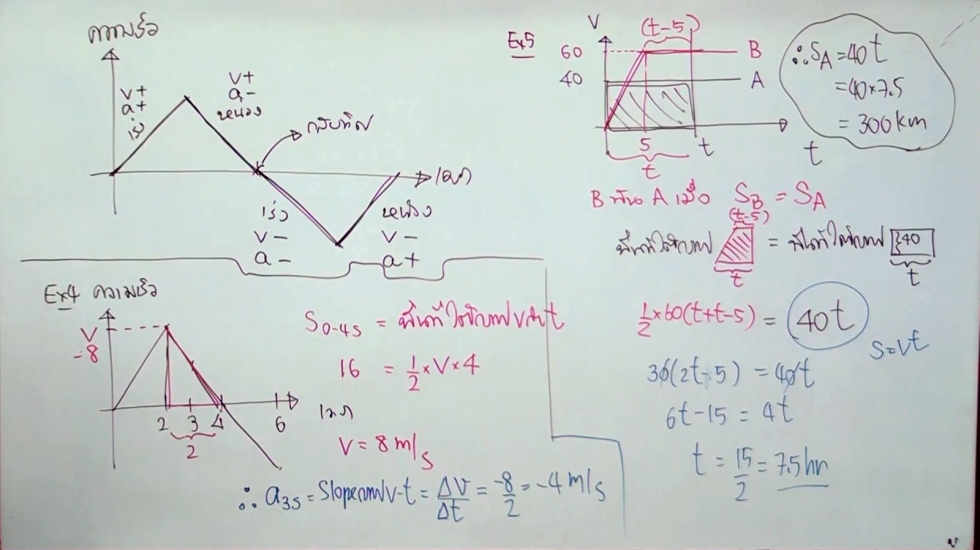 ความเร็ว
v+
a+
เร่ง
v+
a-
หน่วง
กลับทิศ
เวลา
เร่ง
v-
a-
หน่วง
v-
a+
Ex4 ความเร็ว
v
=8
2 3 4 6
2
เวลา
S0-4s = พื้นที่ใต้กราฟ v-t
16 = 1/2 × v × 4
v = 8 m/s
∴ a3s = Slopeกราฟv-t = Δv/Δt = -8/2 = -4 m/s
Ex5
v (t-5)
60 B
40 A
5 t t
t
∴ SA = 40t
= 40×7.5
= 300 km
B ทัน A เมื่อ SB = SA
(t-5)
พื้นที่ใต้กราฟ = พื้นที่ใต้กราฟ 40
t t
1/2 × 60(t+t-5) = 40t
S=vt
30(2t-5) = 40t
6t-15 = 4t
t = 15/2 = 7.5 hr